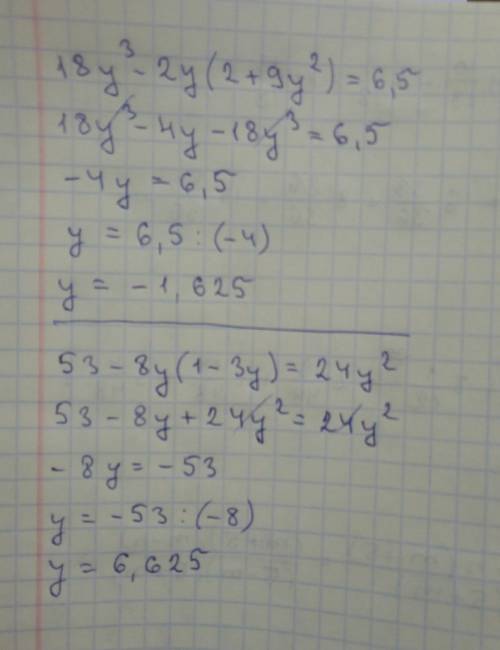 18y³ - 2y(2 + 9y²) = 6,5
18y³ - 4y - 18y³ = 6,5
-4y = 6,5
y = 6,5 : (-4)
y = -1,625
53 - 8y(1 - 3y) = 24y²
53 - 8y + 24y² = 24y²
-8y = -53
y = -53 : (-8)
y = 6,625